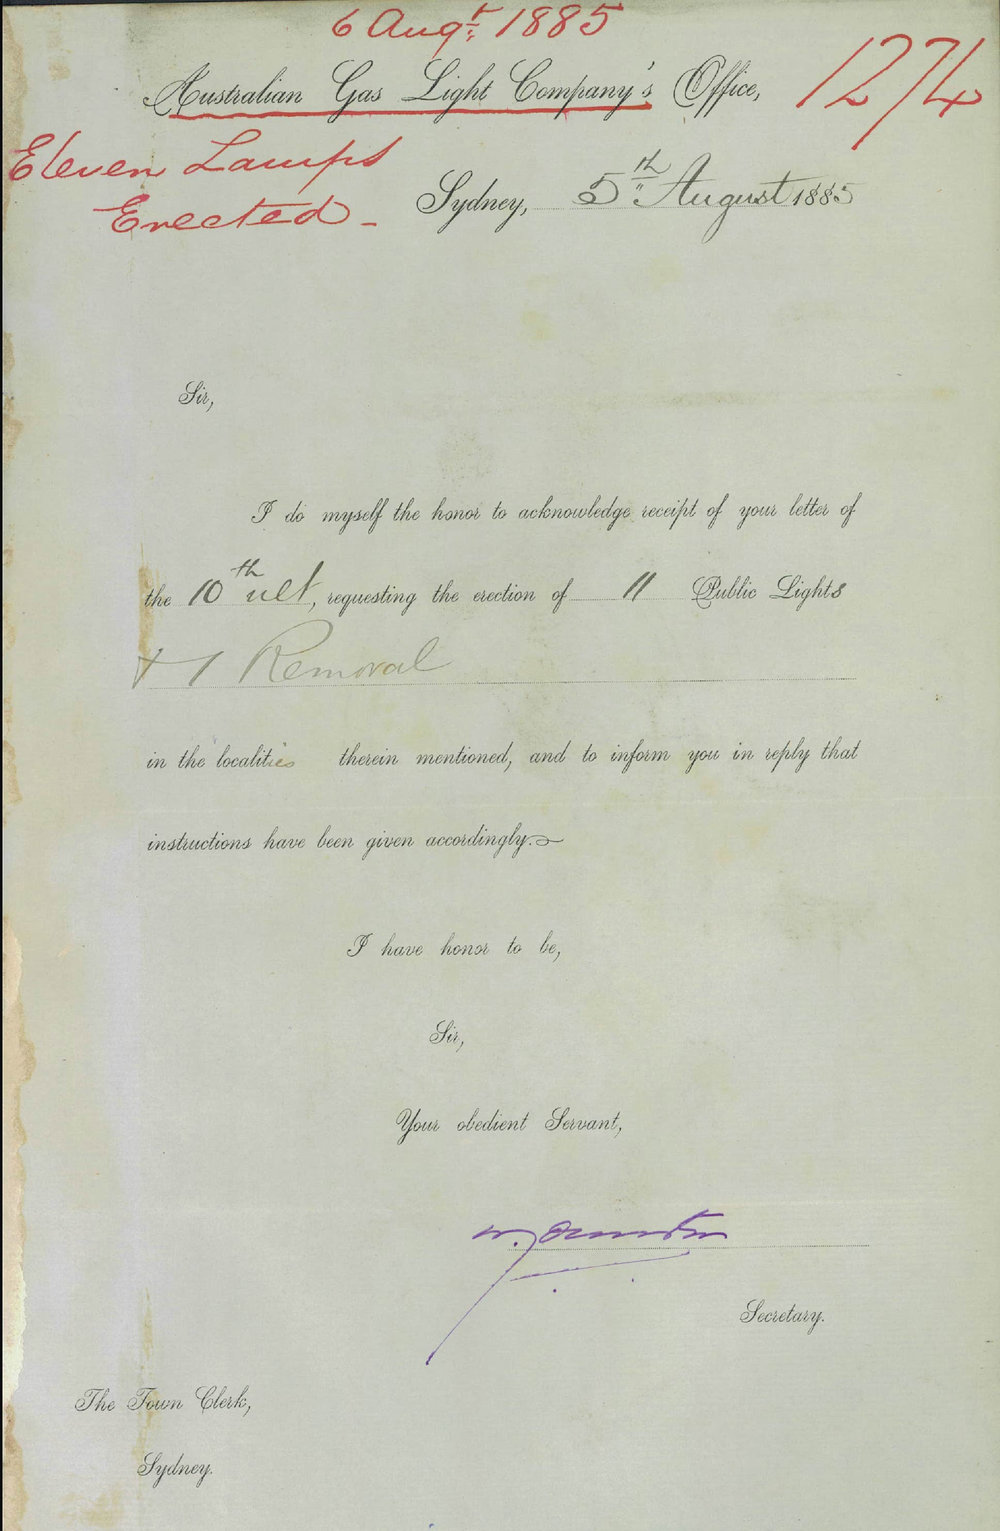 6 Augt. 1885
Australian Gas Light Company's Office,
1274
Eleven Lamps
Erected -
Sydney, 5th August 1885
Sir,
I do myself the honor to acknowledge receipt of your letter of
the 10th ult, requesting the erection of 11 Public Lights
+ 1 Removal
in the localities therein mentioned, and to inform you in reply that
instructions have been given accordingly.
I have honor to be,
Sir,
Your obedient Servant,
Secretary.
The Town Clerk,
Sydney.